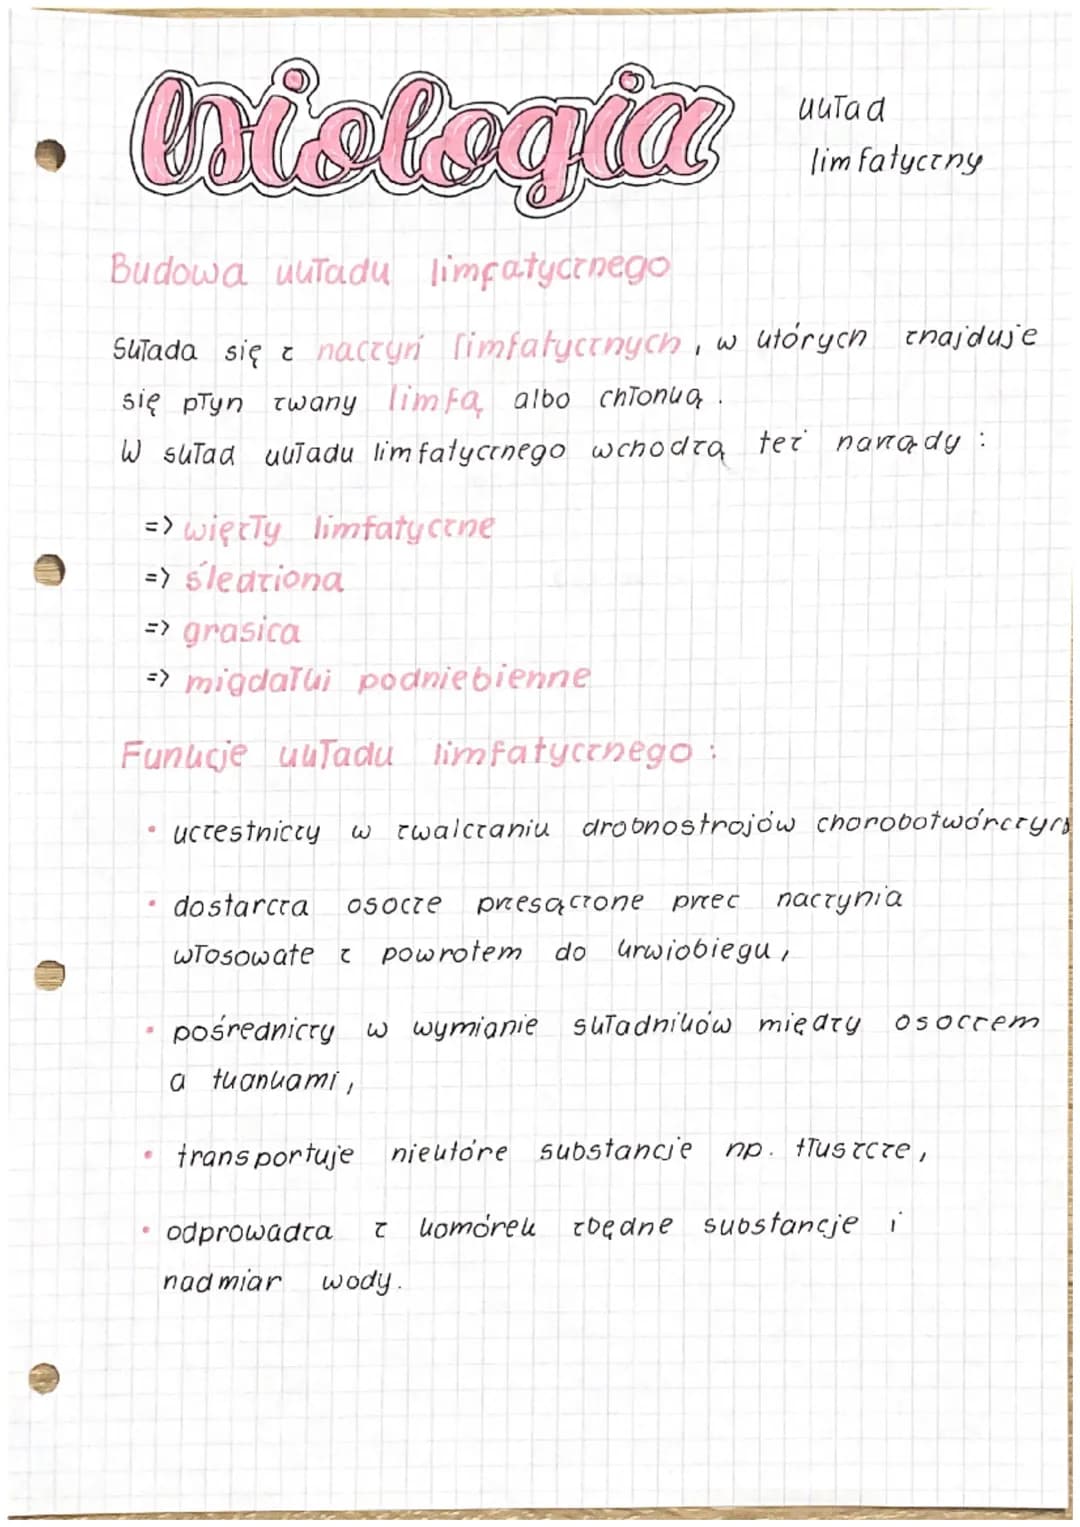 biologia
układ
limfatyczny
Budowa układu limfatycznego
Składa się z naczyń limfatycznych, w których znajduje
się płyn zwany limfą albo chłonką.
W skład układu limfatycznego wchodzą też narządy:
=> więzły limfatyczne
=> śledziona
=> grasica
=> migdałki podniebienne
Funkcje układu limfatycznego:
• uczestniczy w zwalczaniu drobnostrojów chorobotwórczych
• dostarcza osocze przesączone przez naczynia
włosowate z powrotem do krwiobiegu,
• pośredniczy w wymianie składników między osoczem
a tkankami,
• transportuje niektóre substancje np. tłuszcze,
• odprowadza z komórek zbędne substancje i
nadmiar wody.